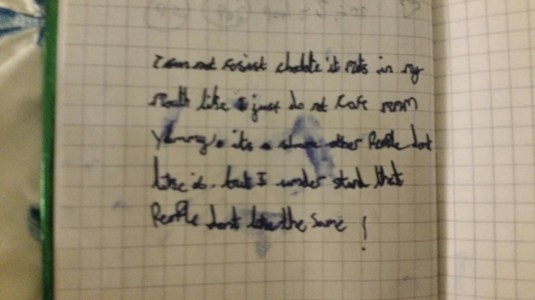 I can not resist choclate it mets in my
mouth like I just do not care mmm
yummy. its a shame other People dont
like it. but I under stand that
PeoPle dont like the same !